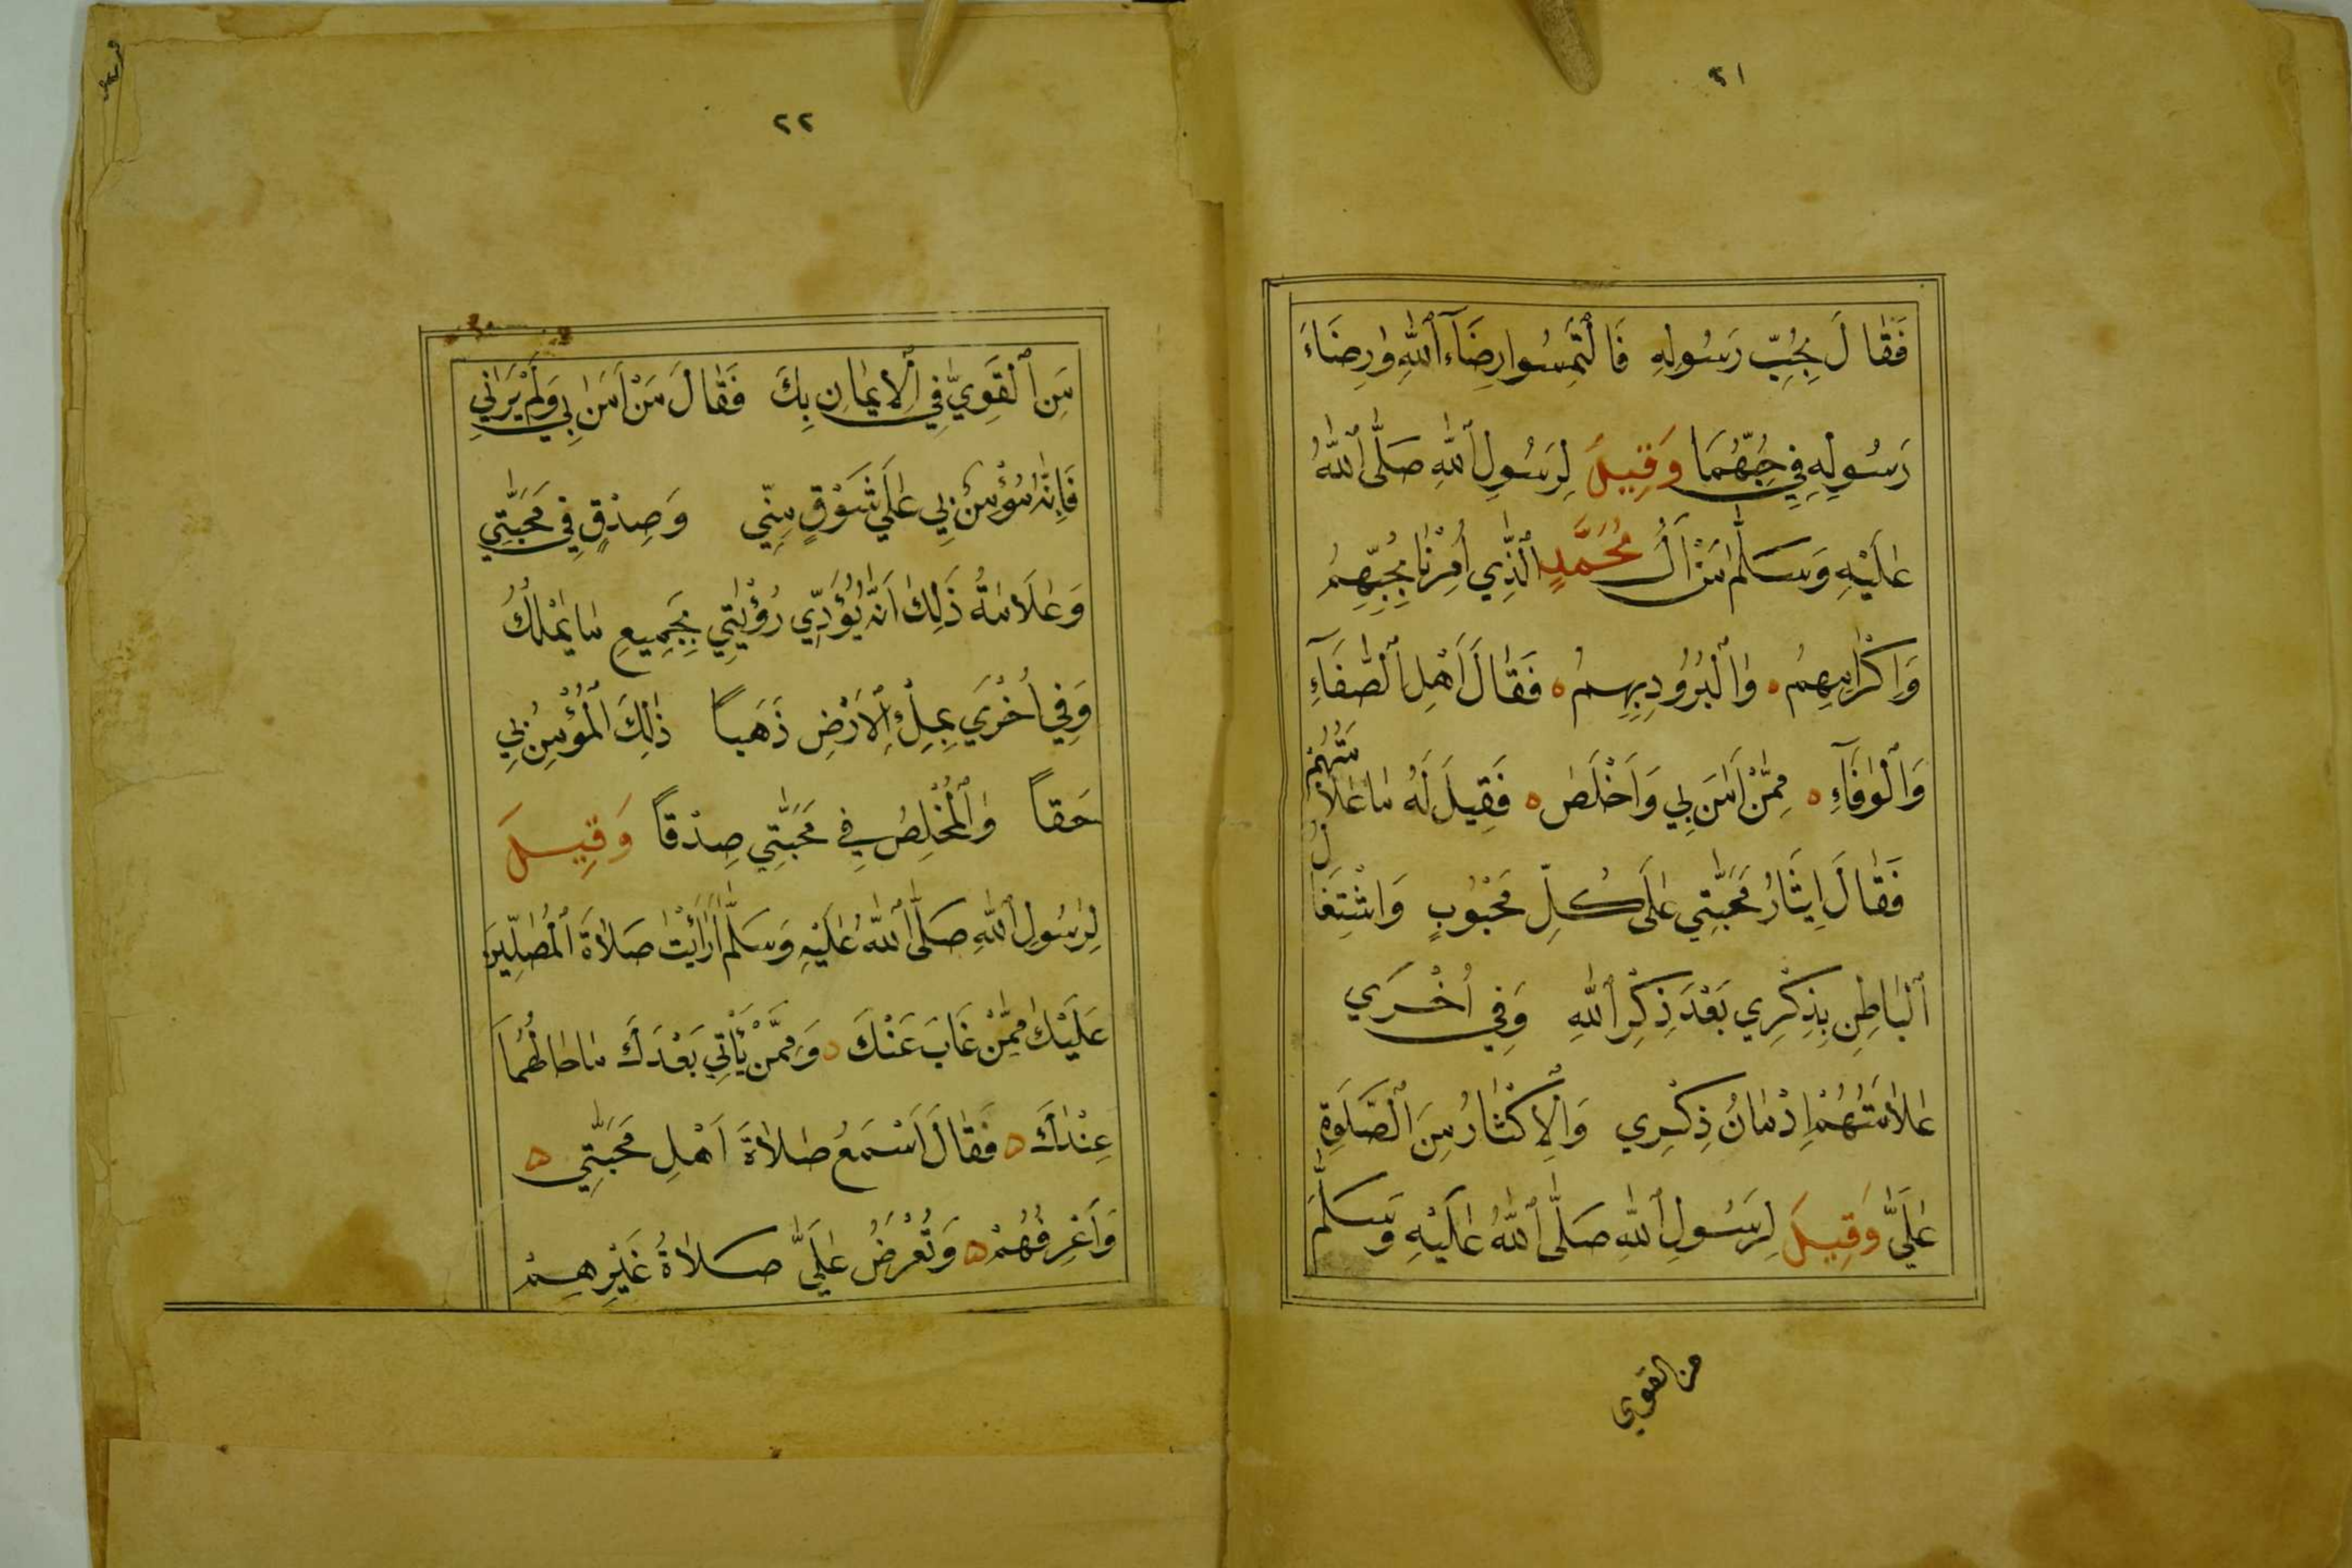 ٢١
فَقَالَ بِحُبِّ رَسُولِهِ فَالْتَمِسُوا رِضَآءَ اللّٰهِ وَرِضَاءَ
رَسُولِهِ فِي حُبِّهِمَا وَقِيلَ لِرَسُولِ اللّٰهِ صَلَّى اللّٰهُ
عَلَيْهِ وَسَلَّمَ مَنْ اٰلُ مُحَمَّدٍ الَّذِي أُمِرْنَا بِحُبِّهِمْ
وَاِكْرَامِهِمْ ه وَالْبُرُودِ بِهِمْ ه فَقَالَ اَهْلِ الصَّفَآءِ
وَالْوَفَآءِ ه مِمَّنْ اٰمَنَ بِي وَاَخْلَصَ ه فَقِيلَ لَهُ مَا عَلَامَتُهُمْ
فَقَالَ اِيثَارُ مَحَبَّتِي عَلَى كُلِّ مَحْبُوبٍ وَاشْتِغَالُ
الْبَاطِنِ بِذِكْرِي بَعْدَ ذِكْرِ اللّٰهِ وَفِي أُخْرَي
عَلَامَتُهُمْ اِدْمَانُ ذِكْرِي وَالْاِكْثَارُ مِنَ الصَّلَوةِ
عَلَيَّ وَقِيلَ لِرَسُولِ اللّٰهِ صَلَّى اللّٰهُ عَلَيْهِ وَسَلَّمَ
من القوي
٢٢
مَنِ الْقَوِيُّ فِي الْاِيمَانِ بِكَ فَقَالَ مَنْ اٰمَنَ بِي وَلَمْ يَرَانِي
فَاِنَّهُ مُؤْمِنٌ بِي عَلَي شَوْقٍ مِنِّي وَصِدْقٍ فِي مَحَبَّتِي
وَعَلَامَةُ ذَلِكَ اَنَّهُ يُؤَدِّي رُؤْيَتِي بِجَمِيعِ مَا يَمْلِكُ
وَفِي أُخْرَي بِمِلْءِ الْاَرْضِ ذَهَباً ذٰلِكَ الْمُؤْمِنُ بِي
حَقاً وَالْمُخْلِصُ فِي مَحَبَّتِي صِدْقاً وَقِيلَ
لِرَسُولِ اللّٰهِ صَلَّى اللّٰهُ عَلَيْهِ وَسَلَّمَ أَرَأَيْتَ صَلَاةَ الْمُصَلِّينَ
عَلَيْكَ مِمَّنْ غَابَ عَنْكَ ه وَمِمَّنْ يَأْتِي بَعْدَكَ مَا حَالُهُمَا
عِنْدَكَ ه فَقَالَ اَسْمَعُ صَلَاةَ اَهْلِ مَحَبَّتِي ه
وَاَعْرِفُهُمْ ه وَتُعْرَضُ عَلَيَّ صَلَاةُ غَيْرِهِمْ